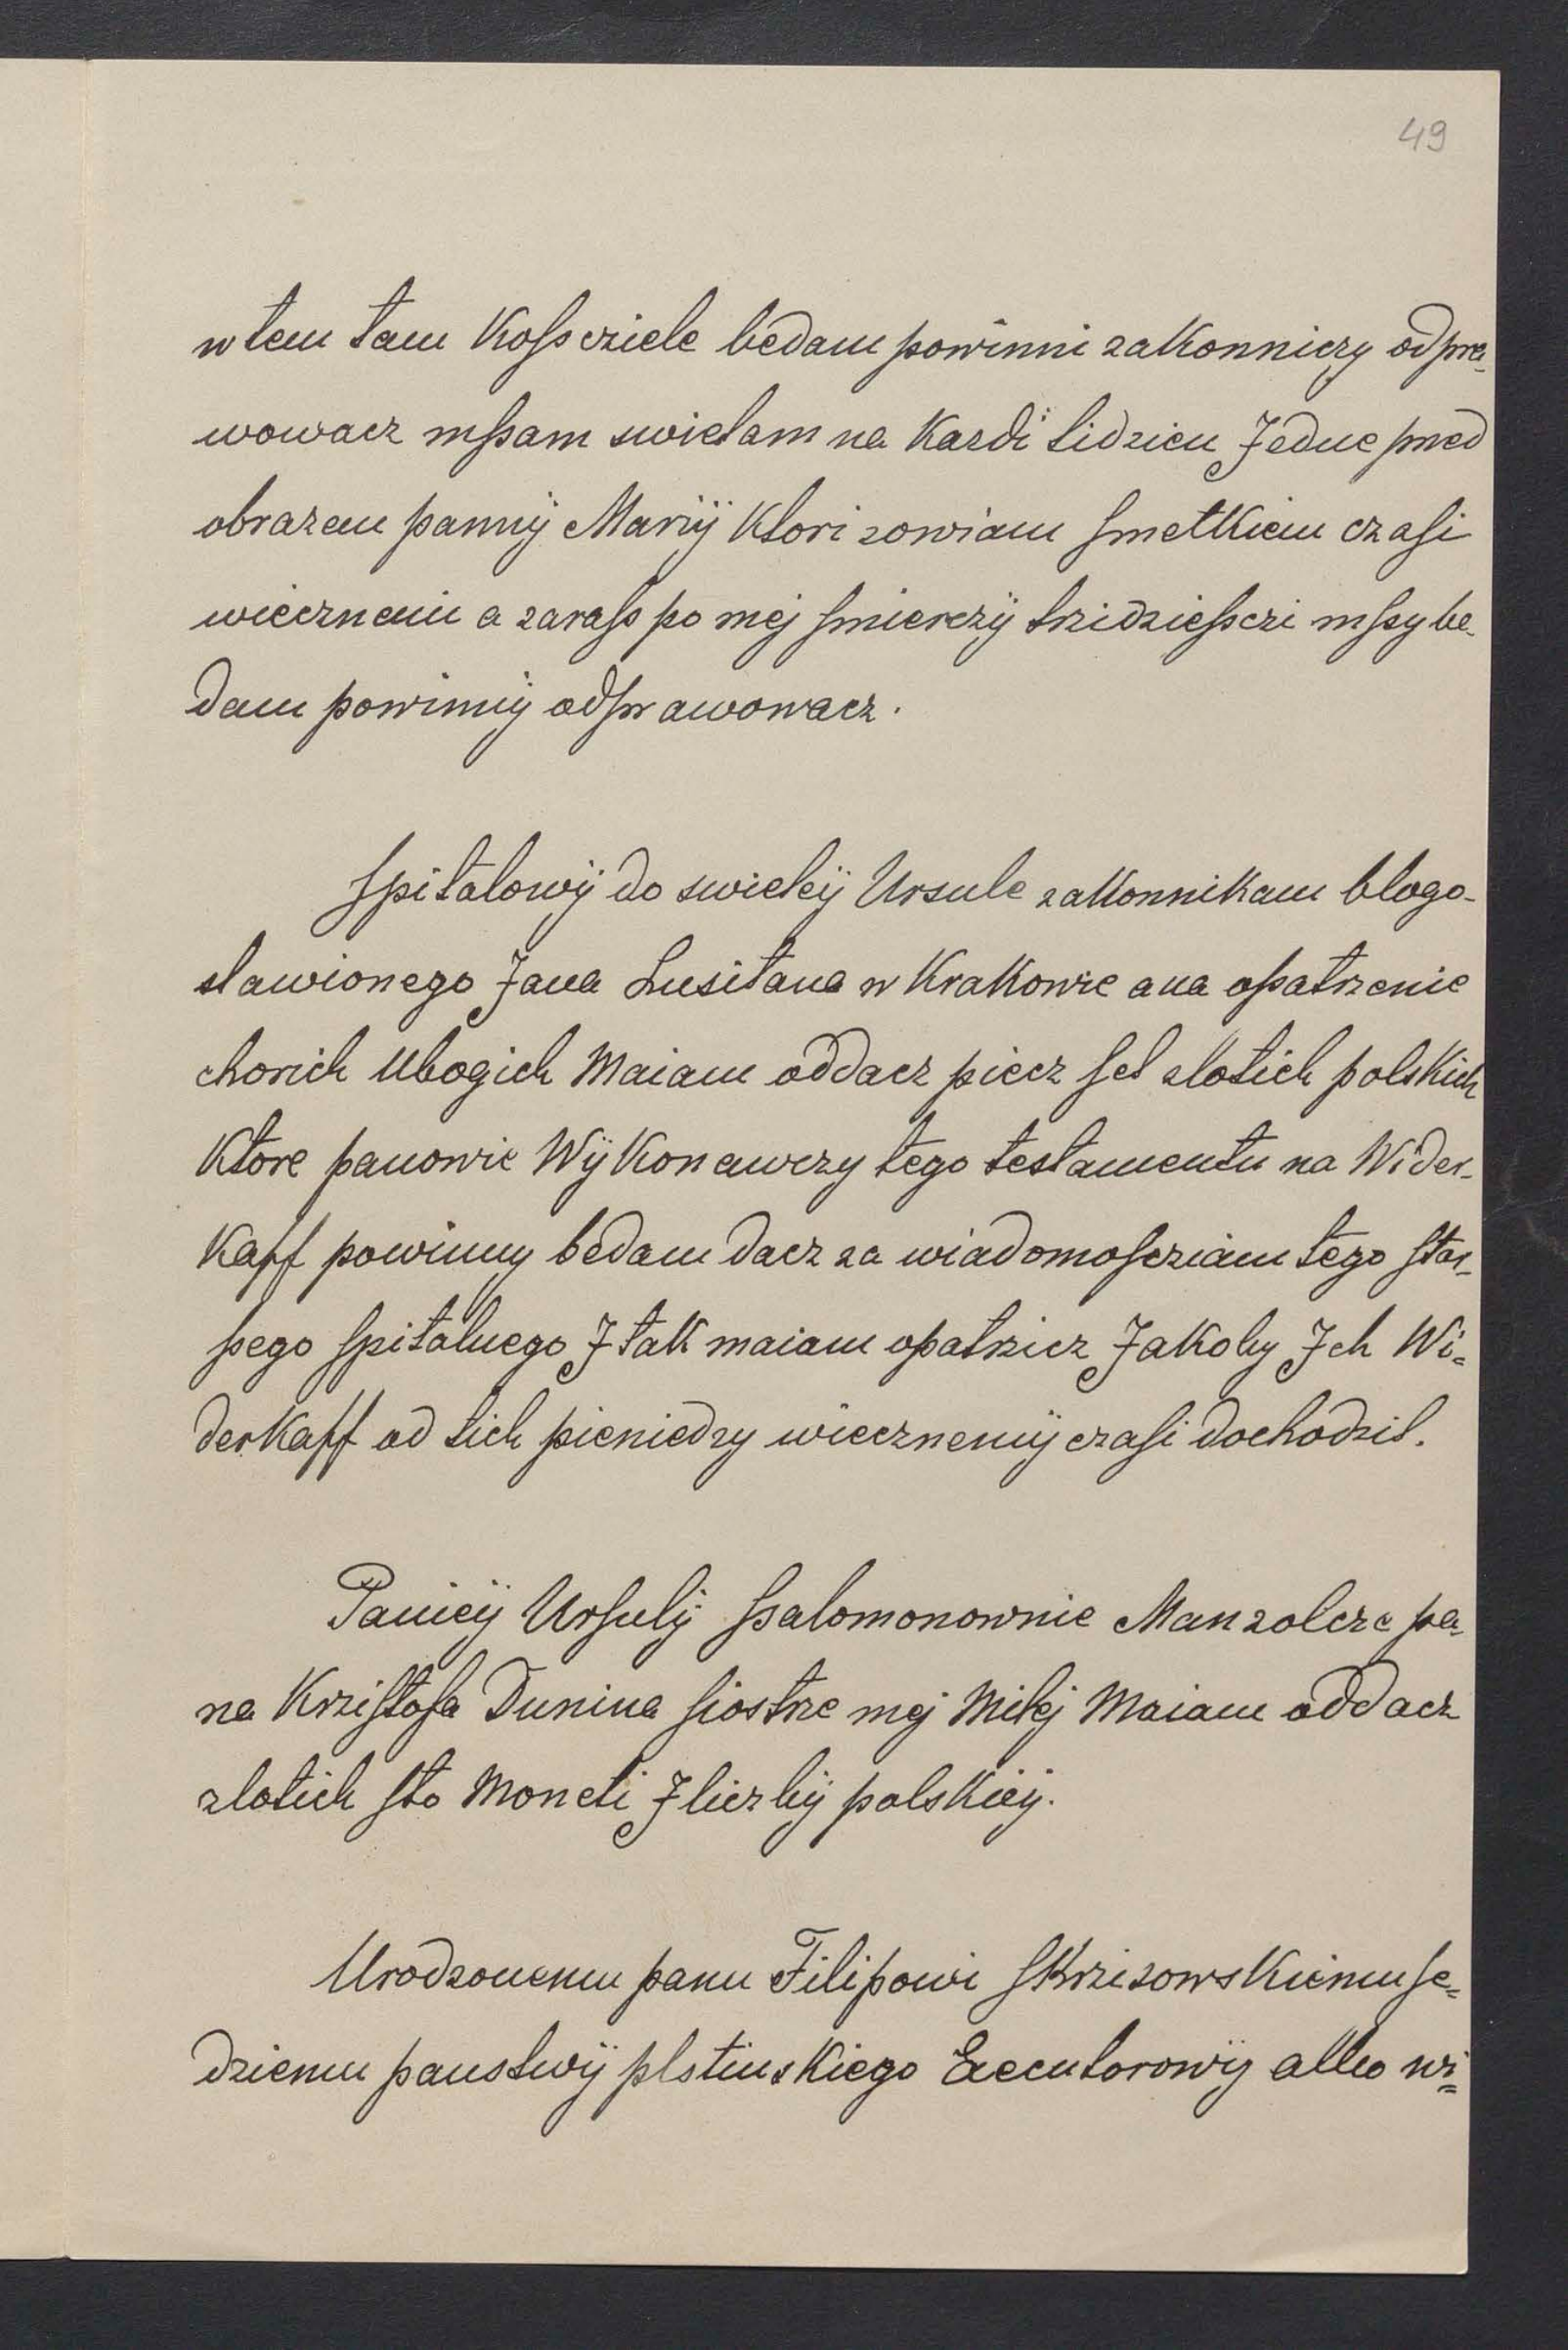 49
w tem tam Kosſcziele bedam powinni zakonniczy odpra-
wowacz mſsam swietam na Kazdi tidzien Jedne pred
obrazem pannÿ Mariÿ Ktori zowiam ſmetkiem czaſi
wiecznemi a zaraſs po mej ſmierczÿ trzidzieſsczi mſsy be-
dam powinnÿ odprawowacz.
ſpitalowÿ do swietey Ursule zakonnikam blogo-
slawionego Jana Lusitana w Krakowie a na opatrzenie
chorich Ubogich Maiam oddacz piecz ſet zlotich polskich
Ktore panowie WÿKonawczy tego testamentu na Wider-
Kaff powinny bedam dacz za wiadomoſcziam tego ſtar-
ſsego ſpitalnego J tak maiam opatrzicz Jakoby Jch Wi-
derKaff od tich pieniedzy wiecznemÿ czaſi dochodzil.
Paniey Urſulÿ ſsalomonownie Manzolcze pa-
na Krziſtofa Dunina ſiostrze mej Milej Maiam oddacz
zlotich ſto Moneti J liczbÿ polskiey.
Urodzonemu panu Filipowi ſkrzisowskiemu ſe-
dziemu panstwÿ plstinskiego Executorowÿ albo wi-